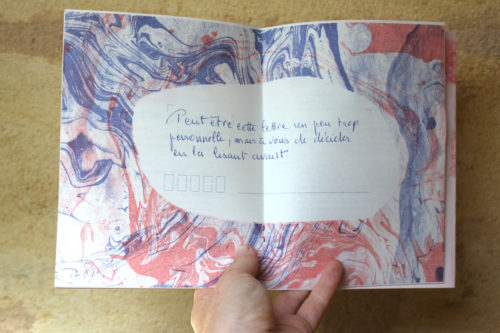 Peut être cette lettre un peu trop
personnelle, mais à vous de décider
en la lisant avant